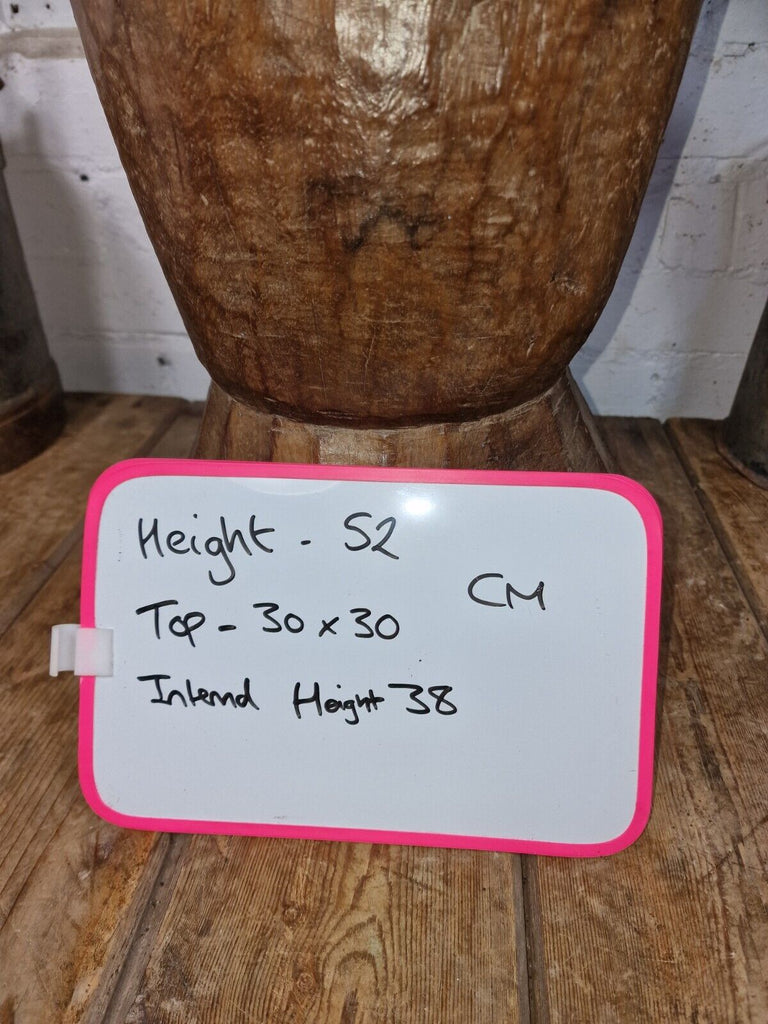 Height - 52
CM
Top - 30 x 30
Internal Height 38